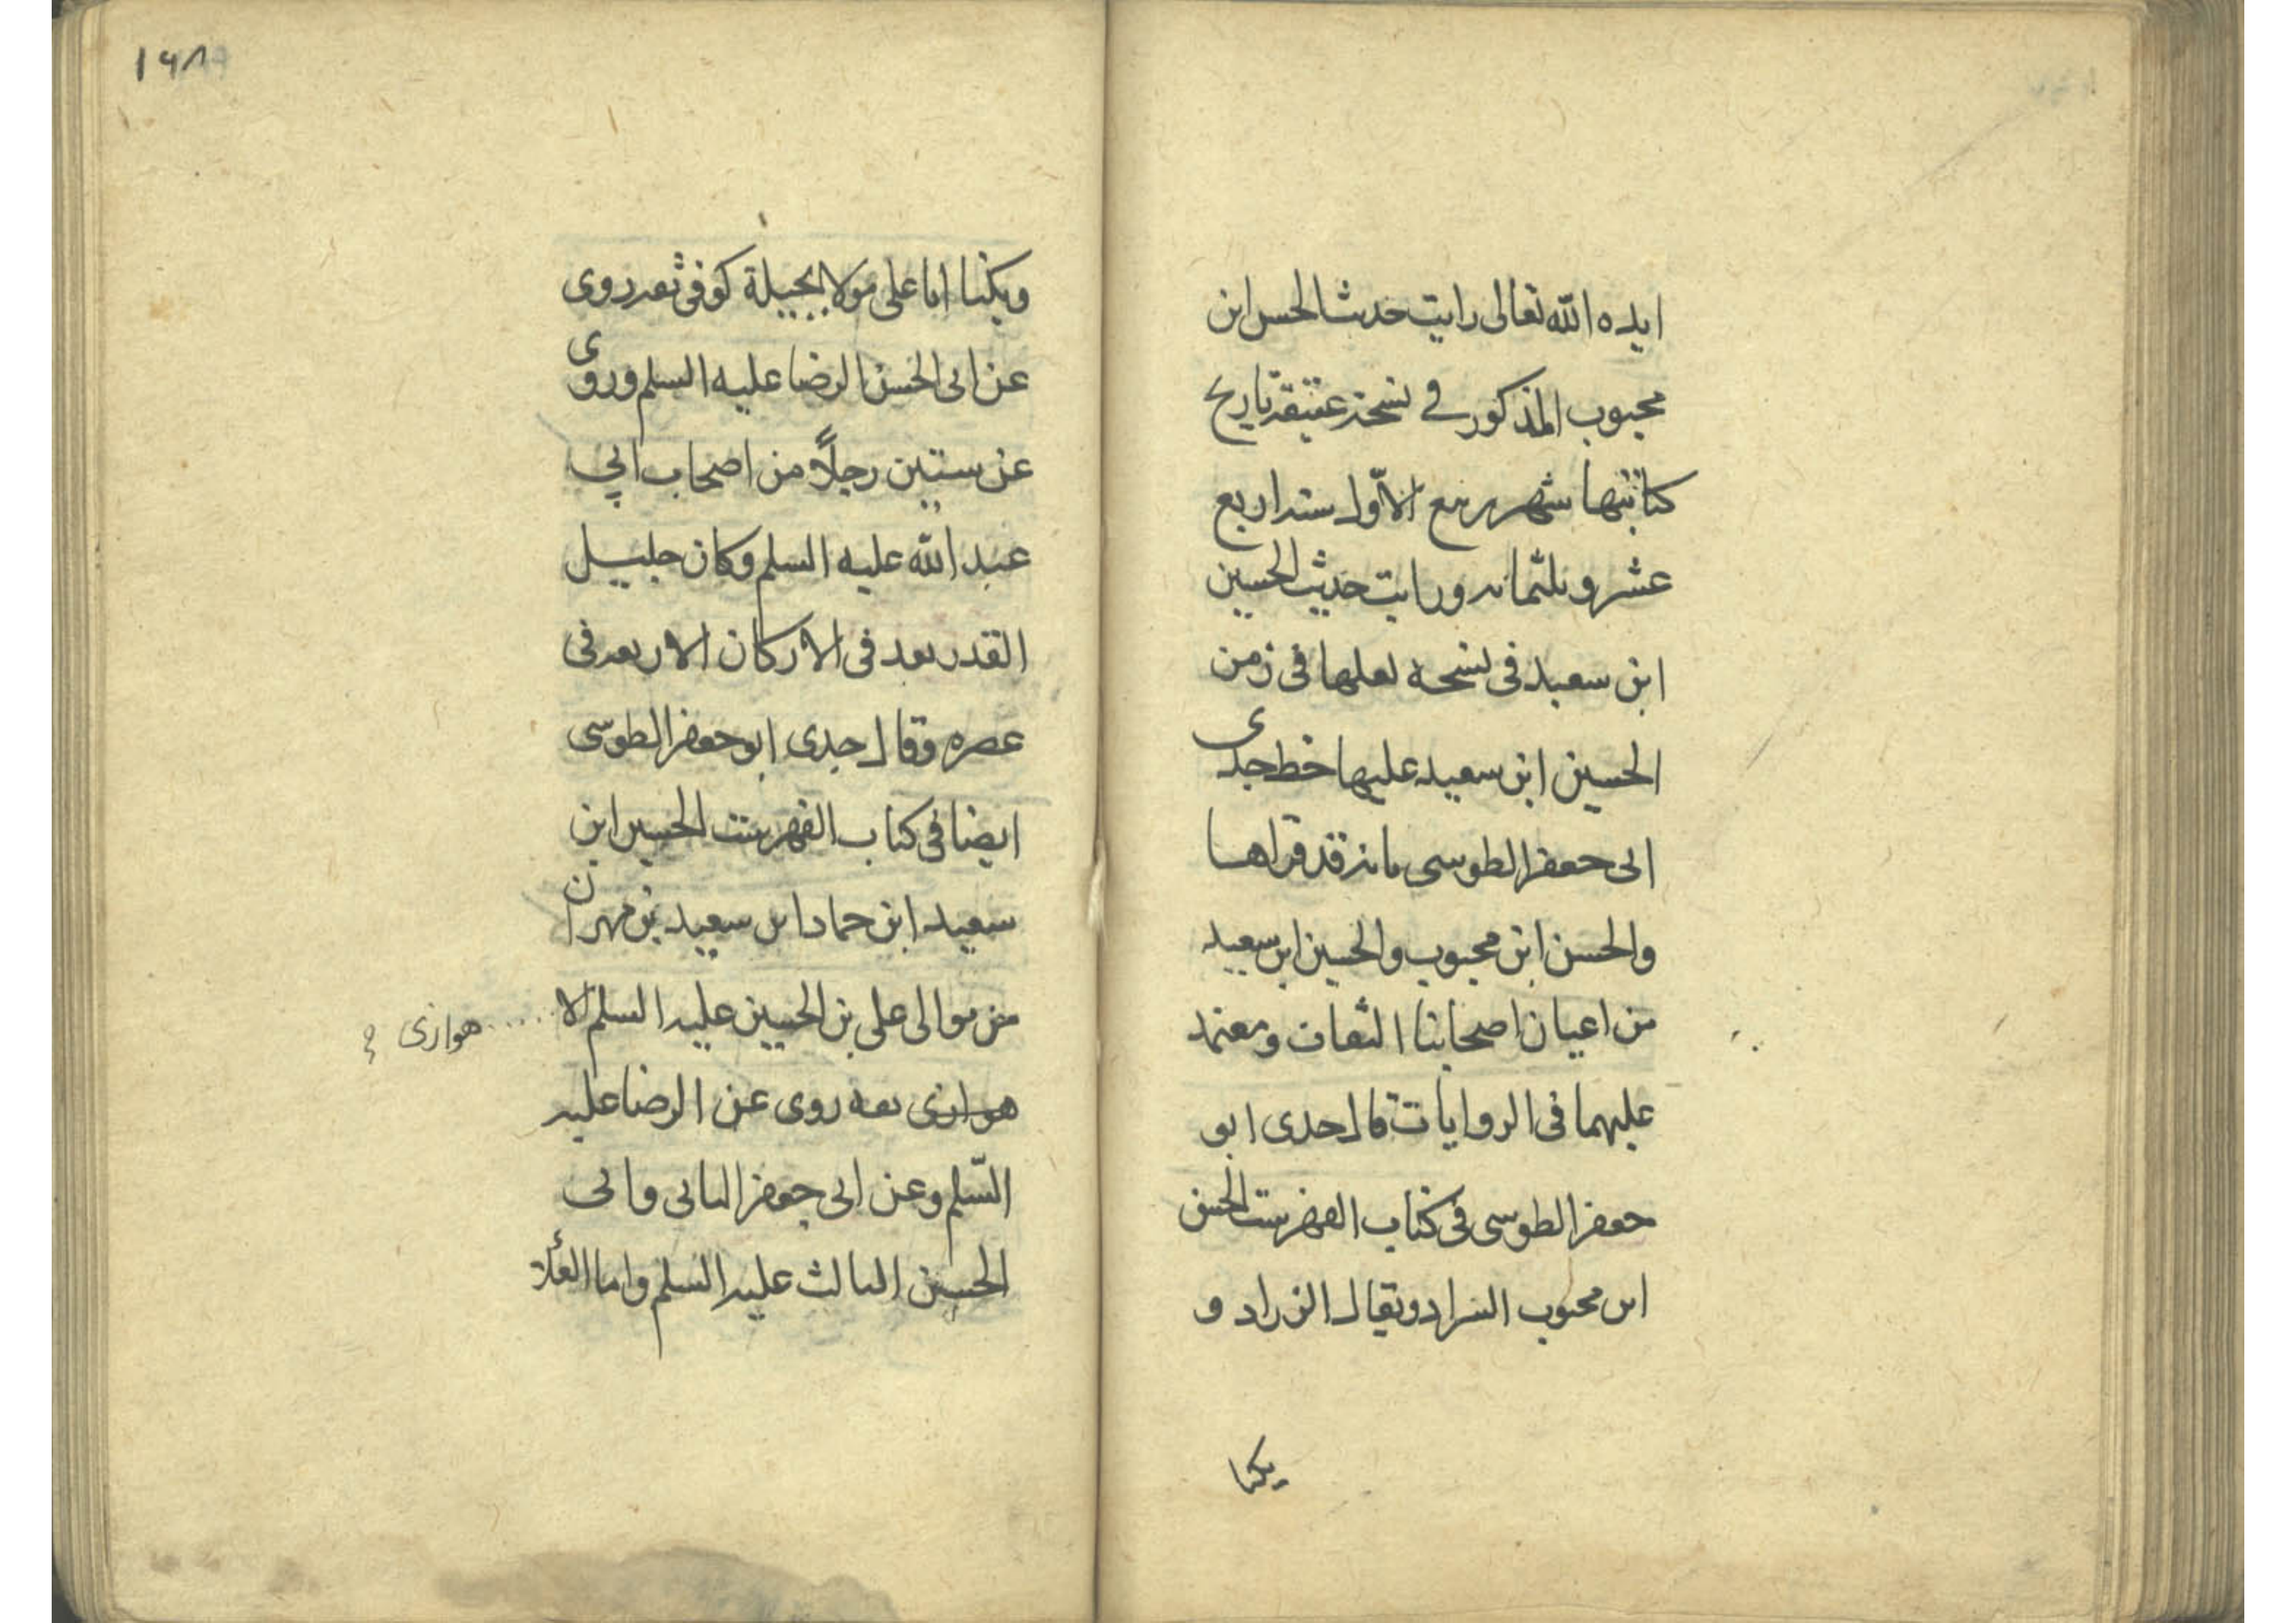 ايده الله تعالى رايت حديث الحسن ابن
محبوب المذكور في نسخة عتيقة تاريخ
كتابتها شهر ربيع الاوّل سنة اربع
عشر وثلثمائة ورايت حديث الحسين
ابن سعيد فى نسخه لعلها فى زمن
الحسين ابن سعيد عليها خط جدى
ابى جعفر الطوسى بانه قد قراها
والحسن ابن محبوب والحسين ابن سعيد
من اعيان اصحابنا الثقات ومعتمد
عليهما فى الروايات قال جدى ابو
جعفر الطوسى فى كتاب الفهرست الحسن
ابن محبوب السراد ويقال الزراد و
يكنا
١٦٨
ويكنا ابا على مولا بجيلة كوفى ثقة روى
عن ابى الحسن الرضا عليه السلم وروى
عن ستين رجلاً من اصحاب ابي
عبد الله عليه السلم وكان جليل
القدر يعد فى الاركان الاربعة فى
عصره وقال جدى ابو جعفر الطوسى
ايضا فى كتاب الفهرست الحسين ابن
سعيد ابن حماد ابن سعيد بن مهران
من موالى على بن الحسين عليه السلم الا ..... هوازى ؟
هوازى ثقه روى عن الرضا عليه
السّلم وعن ابى جعفر الثانى وابى
الحسين الثالث عليه السلم واما العُلا